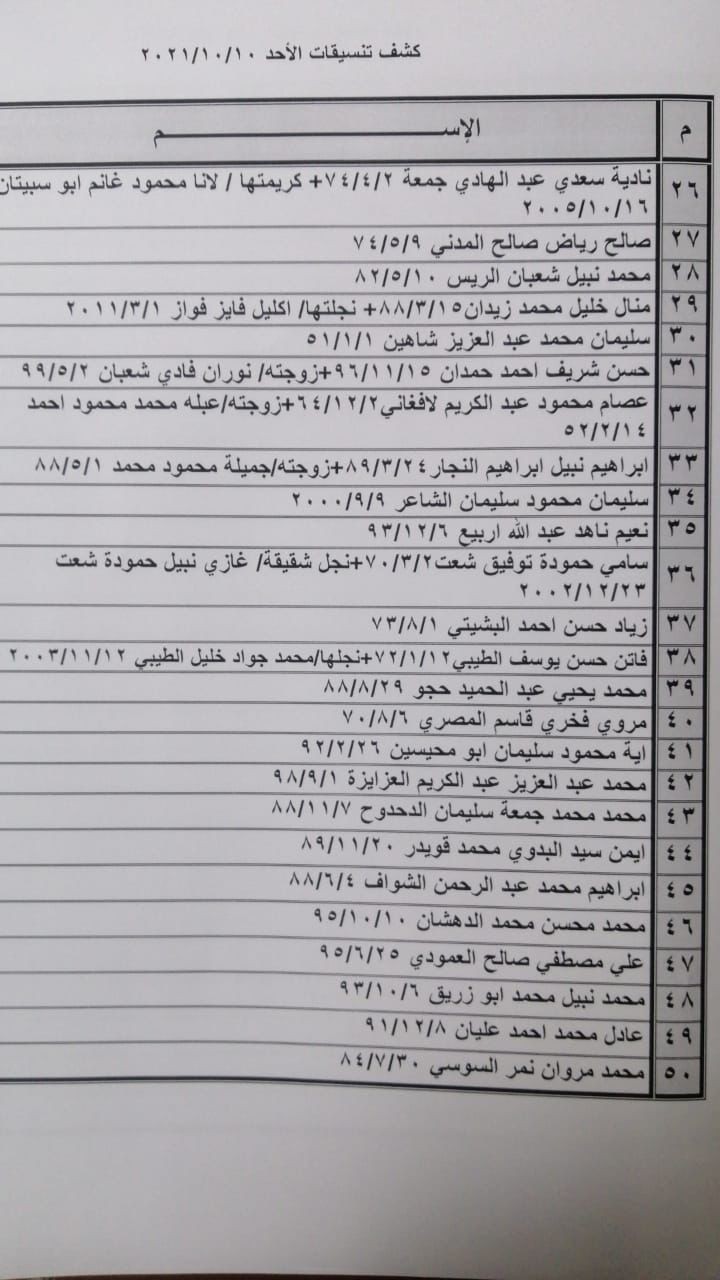 كشف تنسيقات الأحد ٢٠٢١/١٠/١٠
م الإســـــــــــم
٢٦ نادية سعدي عبد الهادي جمعة ٧٤/٤/٢+ كريمتها / لانا محمود غانم ابو سبيتان
٢٠٠٥/١٠/١٦
٢٧ صالح رياض صالح المدني ٧٤/٥/٩
٢٨ محمد نبيل شعبان الريس ٨٢/٥/١٠
٢٩ منال خليل محمد زيدان٨٨/٣/١٥+ نجلتها/ اكليل فايز فواز ٢٠١١/٣/١
٣٠ سليمان محمد عبد العزيز شاهين ٥١/١/١
٣١ حسن شريف احمد حمدان ٩٦/١١/١٥+زوجته/ نوران فادي شعبان ٩٩/٥/٢
٣٢ عصام محمود عبد الكريم لافغاني٦٤/١٢/٢+زوجته/عبله محمد محمود احمد
٥٢/٢/١٤
٣٣ ابراهيم نبيل ابراهيم النجار٨٩/٣/٢٤+زوجته/جميلة محمود محمد ٨٨/٥/١
٣٤ سليمان محمود سليمان الشاعر ٢٠٠٠/٩/٩
٣٥ نعيم ناهد عبد الله اربيع ٩٣/١٢/٦
٣٦ سامي حمودة توفيق شعت٧٠/٣/٢+نجل شقيقة/ غازي نبيل حمودة شعت
٢٠٠٢/١٢/٢٣
٣٧ زياد حسن احمد البشيتي ٧٣/٨/١
٣٨ فاتن حسن يوسف الطيبي٧٢/١/١٢+نجلها/محمد جواد خليل الطيبي ٢٠٠٣/١١/١٢
٣٩ محمد يحيي عبد الحميد حجو ٨٨/٨/٢٩
٤٠ مروي فخري قاسم المصري ٧٠/٨/٦
٤١ اية محمود سليمان ابو محيسين ٩٢/٢/٢٦
٤٢ محمد عبد العزيز عبد الكريم العزايزة ٩٨/٩/١
٤٣ محمد محمد جمعة سليمان الدحدوح ٨٨/١١/٧
٤٤ ايمن سيد البدوي محمد قويدر ٨٩/١١/٢٠
٤٥ ابراهيم محمد عبد الرحمن الشواف ٨٨/٦/٤
٤٦ محمد محسن محمد الدهشان ٩٥/١٠/١٠
٤٧ علي مصطفي صالح العمودي ٩٥/٦/٢٥
٤٨ محمد نبيل محمد ابو زريق ٩٣/١٠/٦
٤٩ عادل محمد احمد عليان ٩١/١٢/٨
٥٠ محمد مروان نمر السوسي ٨٤/٧/٣٠